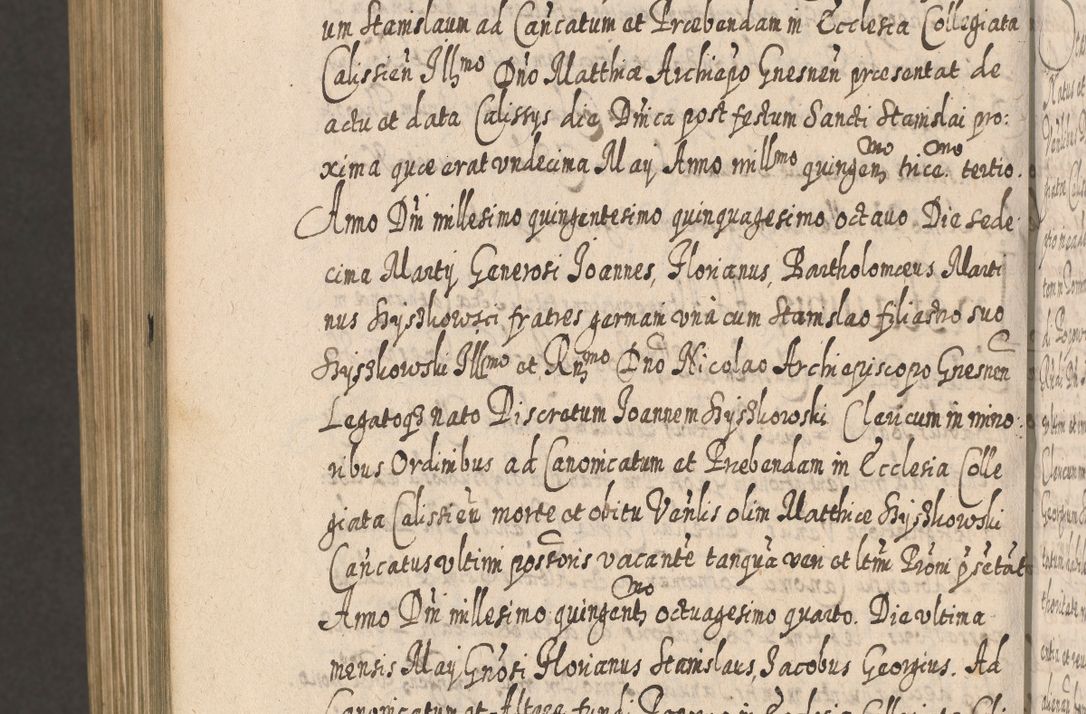 um Stanislaum ad Cańcatum et Præbendam in Ecclesia Collegiata
Calissień Illmo Dńo Matthiæ Archiepo Gnesneń præsentat de
actu et data Calissys die Dńica post festum Sancti Stanislai pro:
xima quæ erat vndecima May Anno millmo quingenmo tricemo tertio.
Anno Dńi millesimo quingentesimo quinquagesimo octauo Die sede
cima Martij Generosi Joannes, Florianus, Bartholomæus Marti
nus Hyszkowsci fratres germani vnà cum Stanislao filiastro suo
Hyszkowski Illmo et Rńmo Dńo Nicolao Archiepiscopo Gnesneń
Legatoq nato Discretum Joannem Hyszkowski Clericum in mino:
ribus Ordinibus ad Canonicatum et Præbendam in Ecclesia Colle
giata Calissień morte et obitu Vańlis olim Matthiæ Hyszkowski
Cańcatus vltimi possoris vacante tanquã veri et ltimi Pŕoni pśetãt
Anno Dńi millesimo quingentmo octuagesimo quarto. Die vltima
mensis May Gńosi Florianus Stanislaus, Jacobus Georgius. Ad
Canonicatum et Altare fundi in Ecclesia Colleg